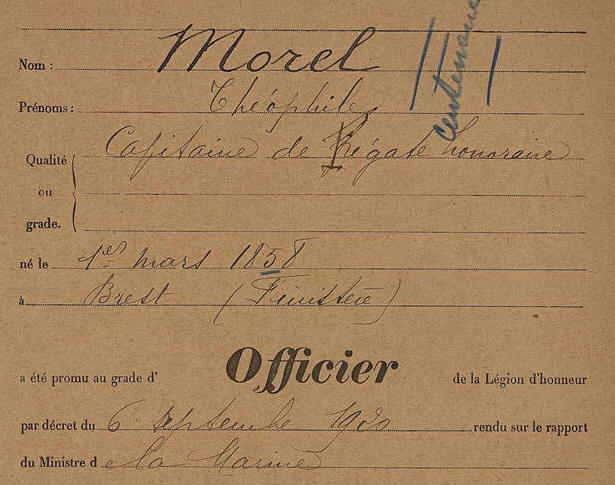 Nom : Morel
centenaire
Prénoms : Théophile
Qualité ou grade. Capitaine de Frégate honoraire
né le 1er mars 1858
à Brest (Finistère)
a été promu au grade d' Officier de la Légion d'honneur
par décret du 6 septembre 1920 rendu sur le rapport
du Ministre de la Marine